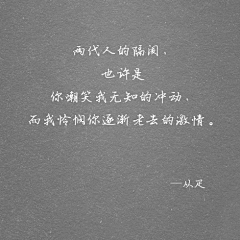 两代人的隔阂，
也许是
你嘲笑我无知的冲动，
而我怜悯你逐渐老去的激情。
—从足